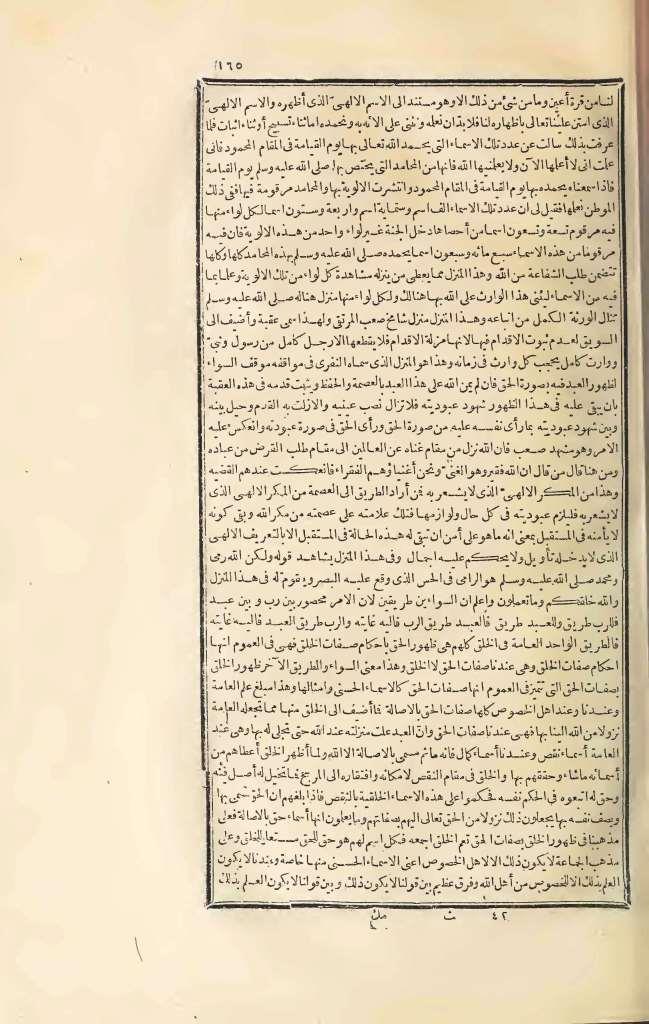 ١٦٥
لنا من قرة أعين وما من شئ من ذلك الا وهو مستند الى الاسم الالهىّ الذى أظهره والاسم الالهىّ
الذى امتن علينا تعالى باظهاره لنا فلا بد ان نعلمه ونثنى على الاله به ونحمده اما ثناء تسبيح أو ثناء اثبات فلما
عرفت بذلك سألت عن عدد تلك الاسماء التى يحمد الله تعالى بها يوم القيامة فى المقام المحمود فانى
علمت انى لا أعلمها الآن ولا يعلمنيها الله فانها من المحامد التى يختص بها صلى الله عليه وسلم يوم القيامة
فاذا سمعناه يحمده بها يوم القيامة فى المقام المحمود وانتشرت الالوية بها والمحامد مرقومة فيها فى ذلك
الموطن نعلمها فقيل لى ان عدد تلك الاسماء ألف اسم وستمائة اسم وأربعة وستون اسما لكل لواء منها
فيه مرقوم تسعة وتسعون اسما من أحصاها دخل الجنة غير لواء واحد من هذه الالوية فان فيه
مرقوما من هذه الاسماء سبع مائة وسبعون اسما يحمده صلى الله عليه وسلم بهذه المحامد كلها وكلها
تتضمن طلب الشفاعة من الله وهذا المنزل مما يعطى من ينزله مشاهدة كل لواء من تلك الالوية وعلما بما
فيه من الاسماء ليثنى هذا الوارث على الله بها هنالك ولكل لواء منها منزل هناله صلى الله عليه وسلم
تنال الورثة الكمل من اتباعه وهذا المنزل منزل شامخ صعب المرتقى ولهذا سمى عقبة وأضيف الى
السويق لعدم ثبوت الاقدام فيها لانها مزلة الاقدام فلا يقطعها الا رجل كامل من رسول ونبىّ
ووارث كامل يحجب كل وارث فى زمانه وهذا هو المنزل الذى سماه النفرى فى مواقفه موقف السواء
لظهور العبد فيه بصورة الحق فان لم يمن الله على هذا العبد بالعصمة والحفظ ويثبت قدمه فى هذه العقبة
بان يبقى عليه فى هذا الظهور شهود عبوديته فلا تزال نصب عينيه والا زلت به القدم وحيل بينه
وبين شهود عبوديته بما رأى نفسه عليه من صورة الحق ورأى الحق فى صورة عبودته وانعكس عليه
الامر وهو مشهد صعب فان الله نزل من مقام غناه عن العالمين الى مقام طلب القرض من عباده
ومن هنا قال من قال ان الله فقير وهو الغنىّ ونحن أغنياء وهم الفقراء فانعكست عندهم القضيه
وهذا من المكر الالهىّ الذى لا يشعر به فمن أراد الطريق الى العصمة من المكر الالهى الذى
لا يشعر به فليلزم عبوديته فى كل حال ولوازمها فتلك علامته على عصمته من مكر الله ويبقى كونه
لا يأمنه فى المستقبل بمعنى انه ما هو على أمن ان تبقى له هذه الحالة فى المستقبل الا بالتعريف الالهى
الذى لا يدخله تأويل ولا يحكم عليه اجمال وفى هذا المنزل يشاهد قوله ولكن الله رمى
ومحمد صلى الله عليه وسلم هو الرامى فى الحس الذى وقع عليه البصر ويقوم له فى هذا المنزل
والله خلقكم وما تعملون واعلم ان السواء بين طريقين لان الامر محصور بين رب وبين عبد
فللرب طريق وللعبد طريق فالعبد طريق الرب فاليه غايته والرب طريق العبد فاليه غايته
فالطريق الواحد العامة فى الخلق كلهم هى ظهور الحق باحكام صفات الخلق فهى فى العموم انها
احكام صفات الخلق وهى عندنا صفات الحق لا الخلق وهذا معنى السواء والطريق الآخر ظهور الخلق
بصفات الحق التى تتميز فى العموم انها صفات الحق كالاسماء الحسنى وامثالها وهذا مبلغ علم العامة
وعندنا وعند اهل الخصوص كلها صفات الحق بالاصالة فما أضيف الى الخلق منها مما تجعله العامة
نزولا من الله الينا بها فهى عندنا صفات الحق وانّ العبد علت منزلته عند الله حتى تحلى بها وهى عند
العامة أسماء نقص وعندنا أسماء كمال فانه ما ثم مسمى بالاصالة الا الله ولما أظهر الخلق أعطاهم من
أسمائه ما شاء وحققهم بها والخلق فى مقام النقص لامكانه وافتقاره الى المرجح فما تخيل له أصل فيه
وحق له اتبعوه فى الحكم نفسه فحكموا على هذه الاسماء الخلقية بالنقص فاذا بلغهم ان الحق تسمى بها
ويصف نفسه بها يجعلون ذلك نزولا من الحق تعالى اليهم بصفاتهم وما يعلمون انها أسماء حق بالاصالة فعلى
مذهبنا فى ظهور الخلق بصفات الحق تعم الخلق اجمعه فكل اسم لهم هو حق للحق مستعار للخلق وعلى
مذهب الجماعة لا يكون ذلك الا لاهل الخصوص اعنى الاسماء الحسنى منها خاصة وعندنا لا يكون
العلم بذلك الا للخصوص من أهل الله وفرق عظيم بين قولنا لا يكون ذلك وبين قولنا لا يكون العلم بذلك
٤٢ ث مك